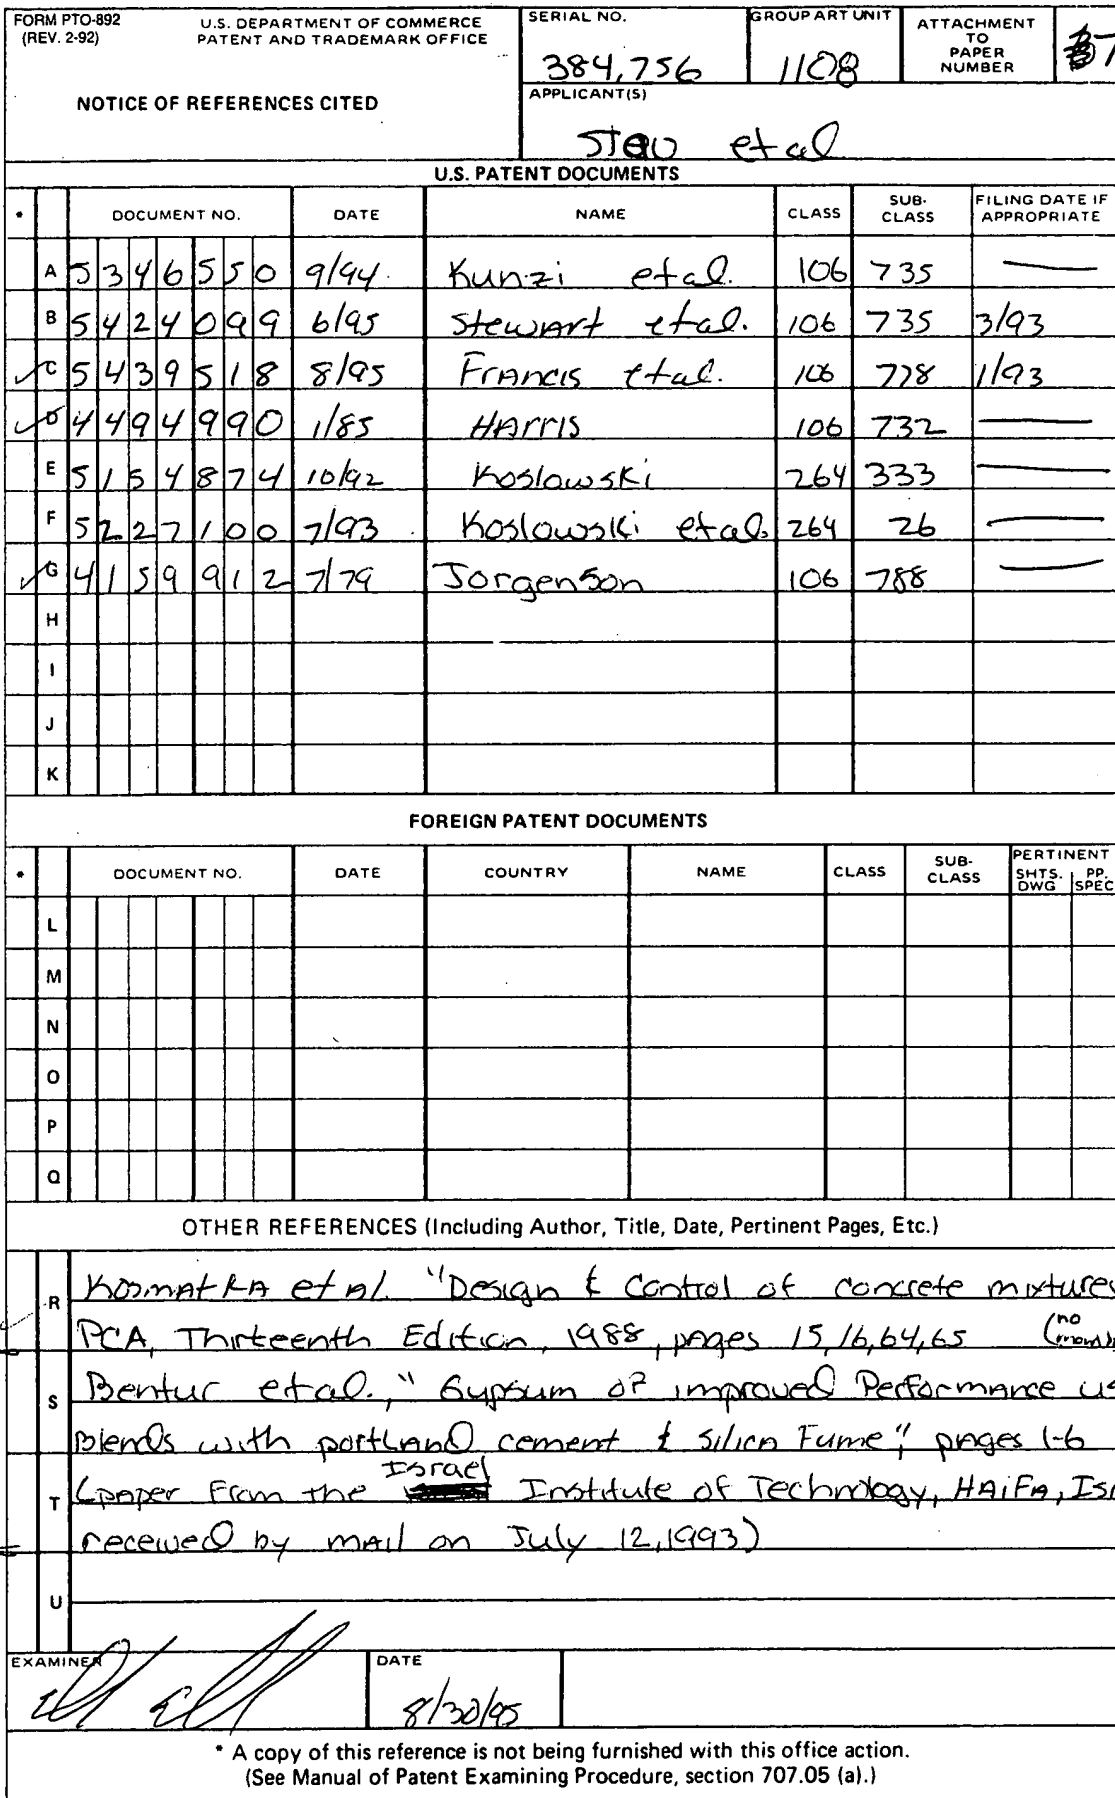 FORM PTO-892 U.S. DEPARTMENT OF COMMERCE
(REV. 2-92) PATENT AND TRADEMARK OFFICE
NOTICE OF REFERENCES CITED
SERIAL NO. 384,756
GROUP ART UNIT 1108
ATTACHMENT TO PAPER NUMBER 7
APPLICANT(S)
Stav et al
U.S. PATENT DOCUMENTS
* DOCUMENT NO. DATE NAME CLASS SUB-CLASS FILING DATE IF APPROPRIATE
A 5346550 9/94 Kunzi et al. 106 735 —
B 5424099 6/95 Stewart et al. 106 735 3/93
✓ C 5439518 8/95 Francis et al. 106 778 1/93
✓ D 4494990 1/85 Harris 106 732 —
E 5154874 10/92 Koslowski 264 333 —
F 5227100 7/93 Koslowski et al. 264 26 —
✓ G 4159912 7/79 Jorgenson 106 788 —
H
I
J
K
FOREIGN PATENT DOCUMENTS
* DOCUMENT NO. DATE COUNTRY NAME CLASS SUB-CLASS PERTINENT SHTS. DWG PP. SPEC
L
M
N
O
P
Q
OTHER REFERENCES (Including Author, Title, Date, Pertinent Pages, Etc.)
R Kosmatka et al. "Design & Control of concrete mixtures
PCA, Thirteenth Edition, 1988, pages 15,16,64,65 (no month)
S Bentur et al., "Gypsum of improved Performance us
Blends with portland cement & Silica Fume", pages 1-6
T (paper from the Israel Institute of Technology, Haifa, Isr
received by mail on July 12, 1993)
U
EXAMINER DATE
8/30/95
* A copy of this reference is not being furnished with this office action.
(See Manual of Patent Examining Procedure, section 707.05 (a).)